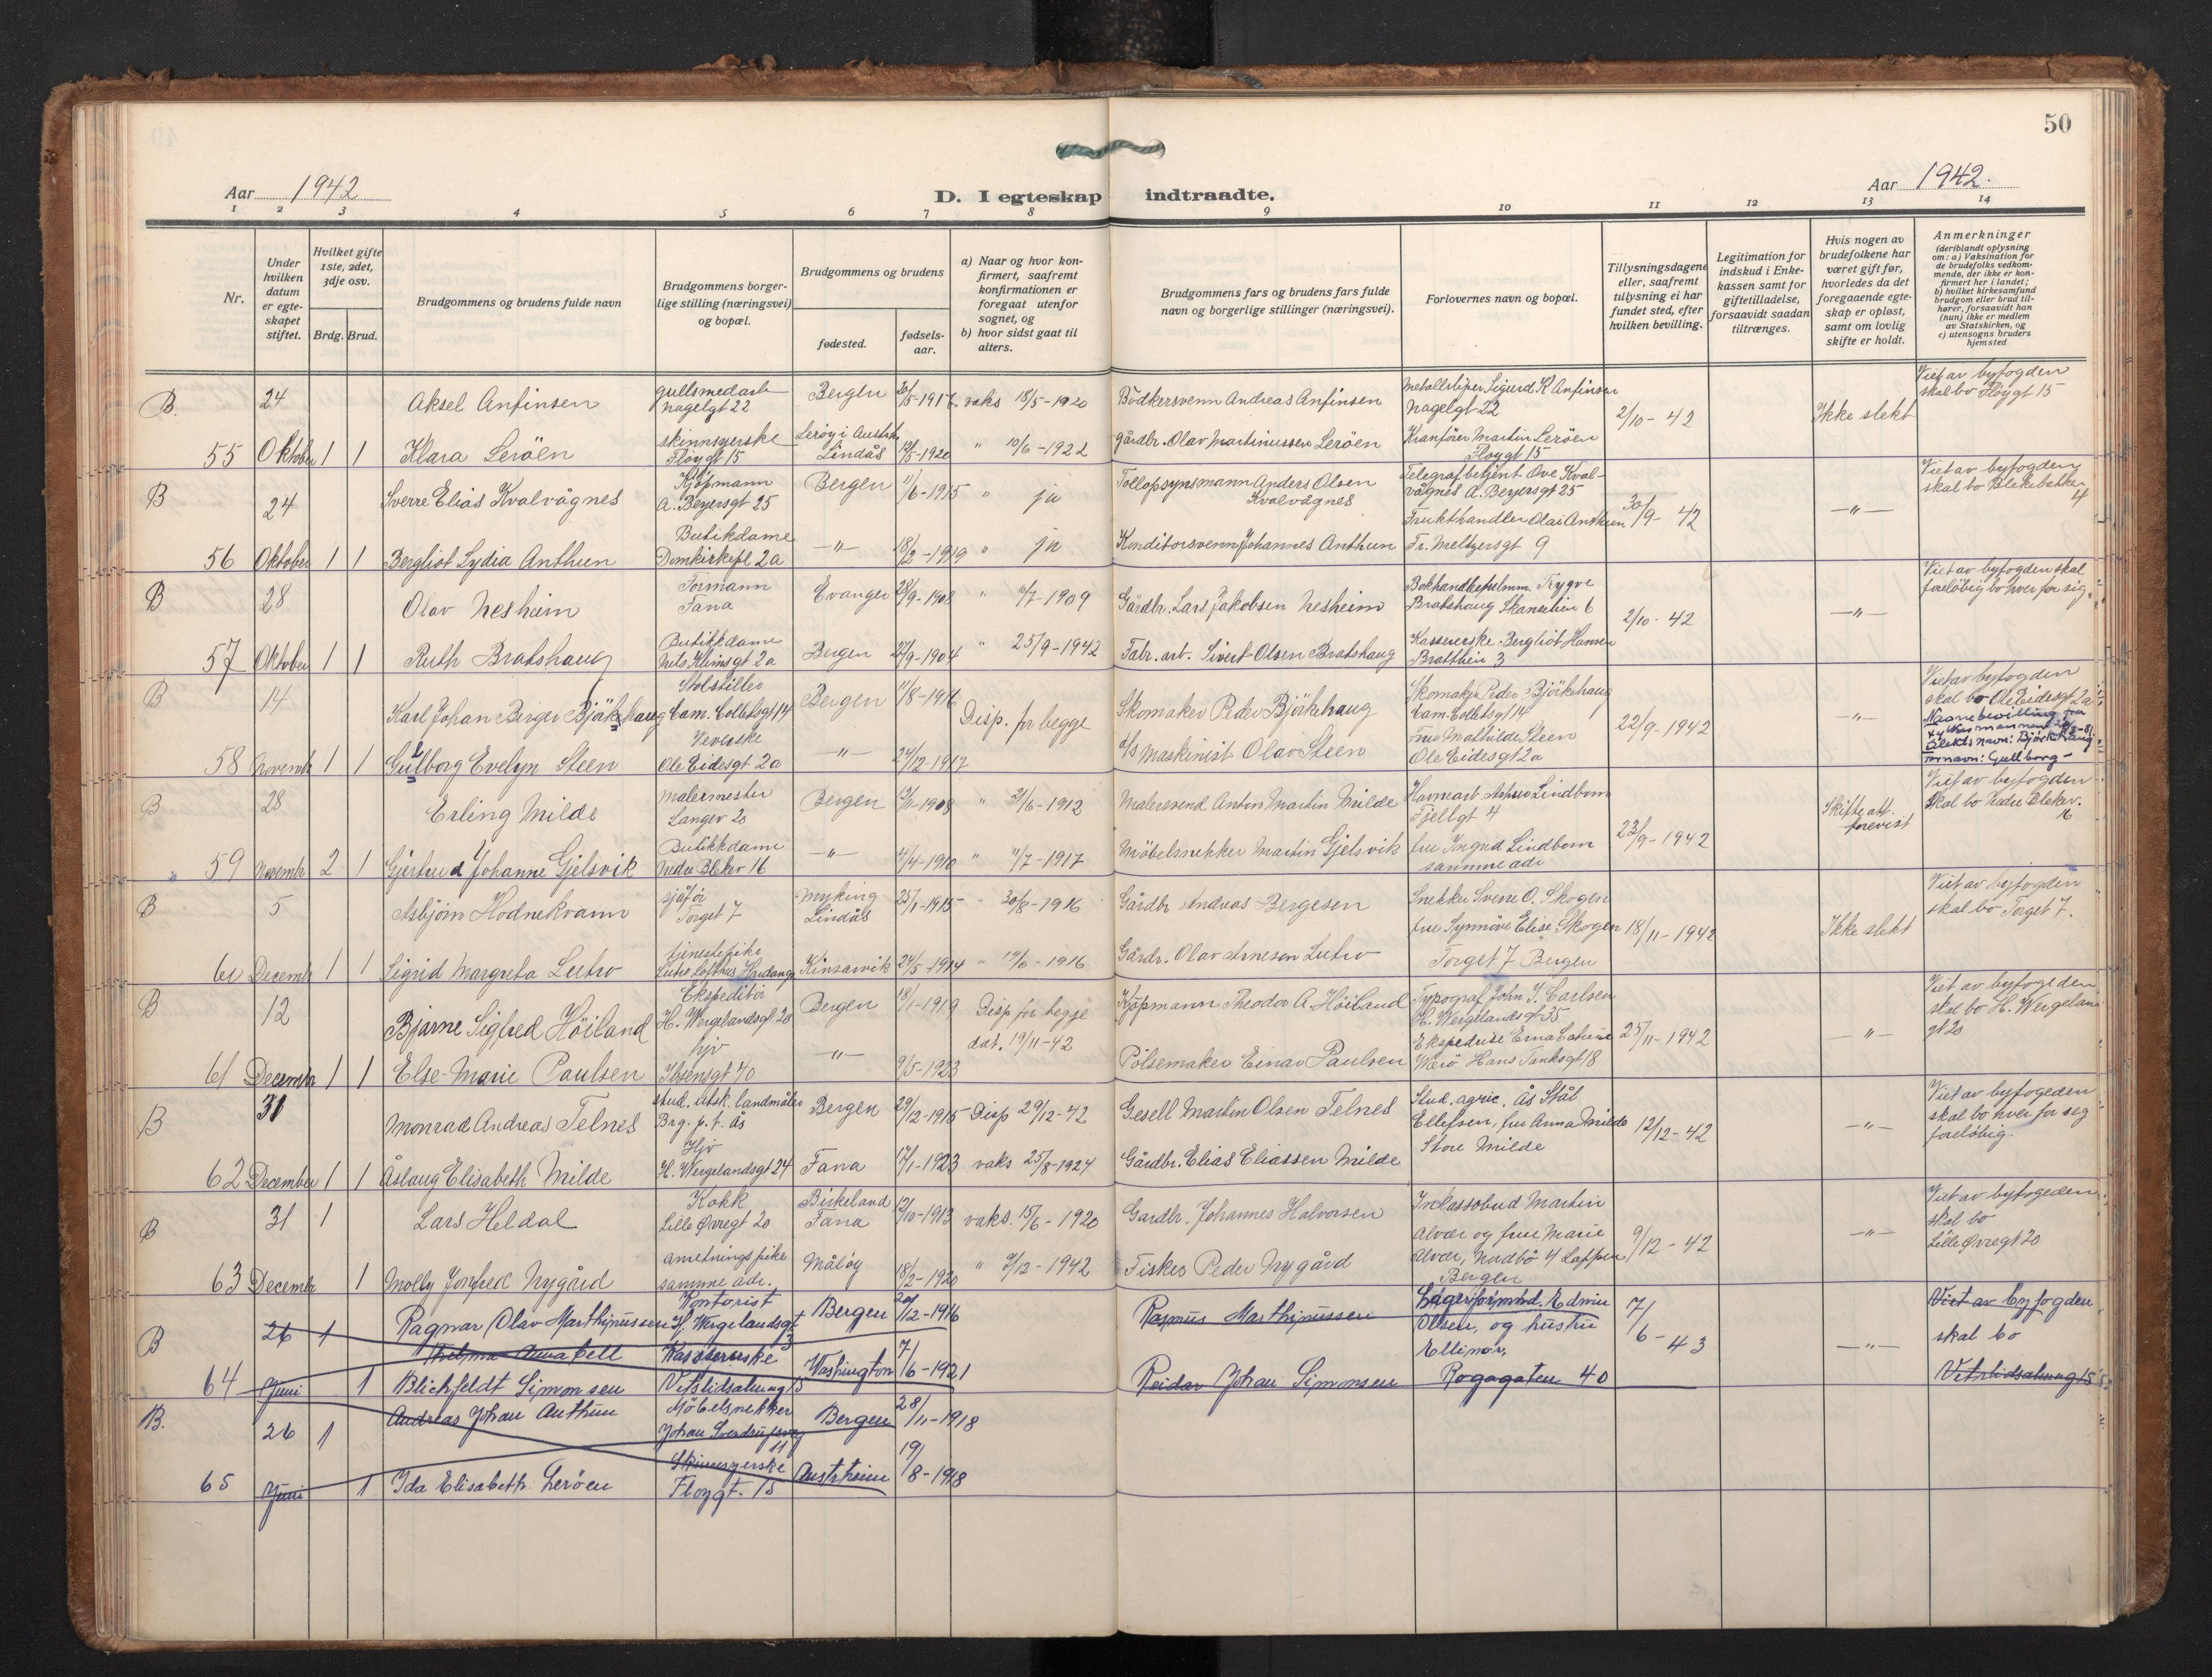 50
Aar 1942
D. I egteskap indtraadte.
Aar 1942.
1 2 3 4 5 6 7 8 9 10 11 12 13 14
Nr.
Under hvilken datum er egteskapet stiftet.
Hvilket gifte 1ste, 2det, 3dje osv.
Brdg. Brud.
Brudgommens og brudens fulde navn
Brudgommens borgerlige stilling (næringsvei) og bopæl.
Brudgommens og brudens
fødested.
fødselsaar.
a) Naar og hvor konfirmert, saafremt konfirmationen er foregaat utenfor sognet, og
b) hvor sidst gaat til alters.
Brudgommens fars og brudens fars fulde navn og borgerlige stillinger (næringsvei).
Forlovernes navn og bopæl.
Tillysningsdagene eller, saafremt tillysning ei har fundet sted, efter hvilken bevilling.
Legitimation for indskud i Enkekassen samt for giftetilladelse, forsaavidt saadan tiltrænges.
Hvis nogen av brudefolkene har været gift før, hvorledes da det foregaaende egteskap er opløst, samt om lovlig skifte er holdt.
Anmerkninger
(deriblandt oplysning om: a) Vaksination for de brudefolks vedkommende, der ikke er konfirmert her i landet;
b) hvilket kirkesamfund brudgom eller brud tilhører, forsaavidt han (hun) ikke er medlem av Statskirken, og
c) utensogns bruders hjemsted
B. 24 Aksel Anfinsen gullsmedarb Nagelgt 22 Bergen 20/5-1917 vaks 18/5-1920 Bödkersvenn Andreas Anfinsen Metallsliper Sigurd K Anfinsen Nagelgt 22 2/10-42 Ikke slekt Viet av byfogden skal bo Fløygt 15
55 Oktober 1 1 Klara Leröen skinnsyerske Fløygt 15 Lerøy i Austrh Lindås 12/5-1920 " 10/6-1922 gårdbr. Olav Martinussen Leröen Kranfører Martin Leröen Fløygt 15
B 24 Sverre Elias Kvalvågnes Kjøpmann A. Beyersgt 25 Bergen 11/6-1915 " ja Tollopsynsmann Anders Olsen Kvalvågnes Telegrafbetjent Ove Kvalvågnes A. Beyersgt 25 30/9-42 -"- Viet av byfogden skal bo Blekebakken 4
56 Oktober 1 1 Bergliot Lydia Anthun Butikdame Domkirkepl 2a -"- 18/2-1919 " ja Konditorsvenn Johannes Anthun Frukthandler Olai Anthun Fr. Meltzersgt 9
B 28 Olav Nesheim Formann Fana Evanger 28/9-1908 " 11/7-1909 Gårdbr. Lars Jakobsen Nesheim Trygve Bratshaug Skanselien 6 2/10-42 -"- Viet av byfogden skal foreløbig bo hver for sig.
57 Oktober 1 1 Ruth Bratshaug Butikkdame Nels Klimsgt 2a Bergen 27/9-1904 " 25/9-1942 Fabr. arb. Sivert Olsen Bratshaug Kassererske Bergliot Hansen Brattlien 3
B 14 Karl Johan Birger Björkehaug Cam. Colletsgt 14 Bergen 11/8-1916 Disp. for begge Skomaker Peder Björkehaug Skomaker Peder Björkehaug Cam Colletsgt 14 22/9-1942 -"- Viet av byfogden skal bo Ole Eidesgt 2a
Navnebevilling fra
Slekts navn: Björkhaug
Fornavn: Gullborg-
58 Novemb 1 1 Gulborg Evelyn Steen Veverske Ole Eidesgt 2a -"- 24/12-1917 Maskinist Olav Steen fru Mathilde Steen Ole Eidesgt 2a
B 28 Erling Milde Malermester Langev 20 Bergen 12/11-1908 " 21/6-1912 Malersvend Anton Martin Milde Lindbom Fjellgt 4 23/9-1942 Skifte att. forevist Viet av byfogden skal bo Nedre Blekev. 16
59 Novembr 2 1 Gjertrud Johanne Gjelsvik Butikkdame Nedre Blekev 16 -"- 4/4-1910 " 11/7-1917 Möbelsnekker Martin Gjelsvik fru Ingrid Lindbom samme adr
B 5 Asbjörn Hodnekvam sjåfør Torget 7 Myking Lindås 25/1-1915 " 30/8-1916 Gårdbr Andreas Bergesen Snekker Sverre O. Skogen fru Synnöve Elise Skogen Torget 7 Bergen 18/11-1942 Ikke slekt Viet av byfogden skal bo Torget 7.
60 Decembr 1 1 Sigrid Margreta Lutro tjenestepike Lutro Lofthus Hardang Kinsarvik 24/5-1914 " 19/6-1916 Gårdbr. Olav Arnesen Lutro
B 12 Bjarne Sigfred Höiland Ekspeditør H. Wergelandsgt 20 Bergen 18/1-1919 Disp for begge dat. 19/11-42 Kjøpmann Theodor A. Höiland Typograf John Y. Carlsen H. Wergelandsgt 35 25/11-1942 -"- Viet av byfogeden skal bo H. Wergelan gt 20
61 Decembr 1 1 Else-Marie Paulsen hjv Ibsensgt 40 -"- 9/5-1923 Pölsemaker Einar Paulsen Ekspedrise Erna Catrine Werö Hans Tanksgt 18
B 31 Monrad Andreas Telnes stud. utsk. landmåler Brg. p.t. Ås Bergen 29/12-1915 Disp 29/12-42 Gesell Martin Olsen Telnes Stud. agric. Ås Stål Ellefsen, fru Anna Milde Store Milde 12/12-42 -"- Viet av byfogeden skal bo hver for seg foreløbig.
62 December 1 1 Åslaug Elisabeth Milde Hjv H. Wergelandsgt 24 Fana 17/1-1923 vaks 25/8-1924 Gårdbr. Elias Eliassen Milde
B 31 1 Lars Heldal Kokk Lille Øvregt 20 Birkeland Fana 12/10-1913 vaks. 15/6-1920 Gardbr. Johannes Halvorsen Inkassobud Martin Alvær og frue Marie Alvær, Nordbö 4 Lappen Bergen 9/12-42 -"- Viet av byfogeden skal bo Lille Øvregt 20
63 Decembr 1 Molly Jonfred Nygård anretningspike samme adr. Måløy 18/2-1920 " 7/12-1942 Fisker Peder Nygård
B 26 1 Ragnar Olav Marthinussen Kontorist H. Wergelandsgt 3 Bergen 20/12-1916 Rasmus Marthinussen Lagerformnd. Edmin Olsen, og hustru Ellinor, Rogagaten 40 7/6-43 -"- Viet av byfogden skal bo Vetrlidsalmng 15
64 Juni 1 Thelma Anna bell Blichfeldt Simonsen Kassererske Vetrlidsalmng 15 Washington 7/6-1921 Reidar Johan Simonsen
B. 26 1 Andreas Johan Anthun Möbelsnekker Johan Sverdrupsvg 11 Bergen 28/11-1918
65 Juni 1 Ida Elisabeth Leröen Skinnsyerske Fløygt. 15 Austrheim 19/8-1918